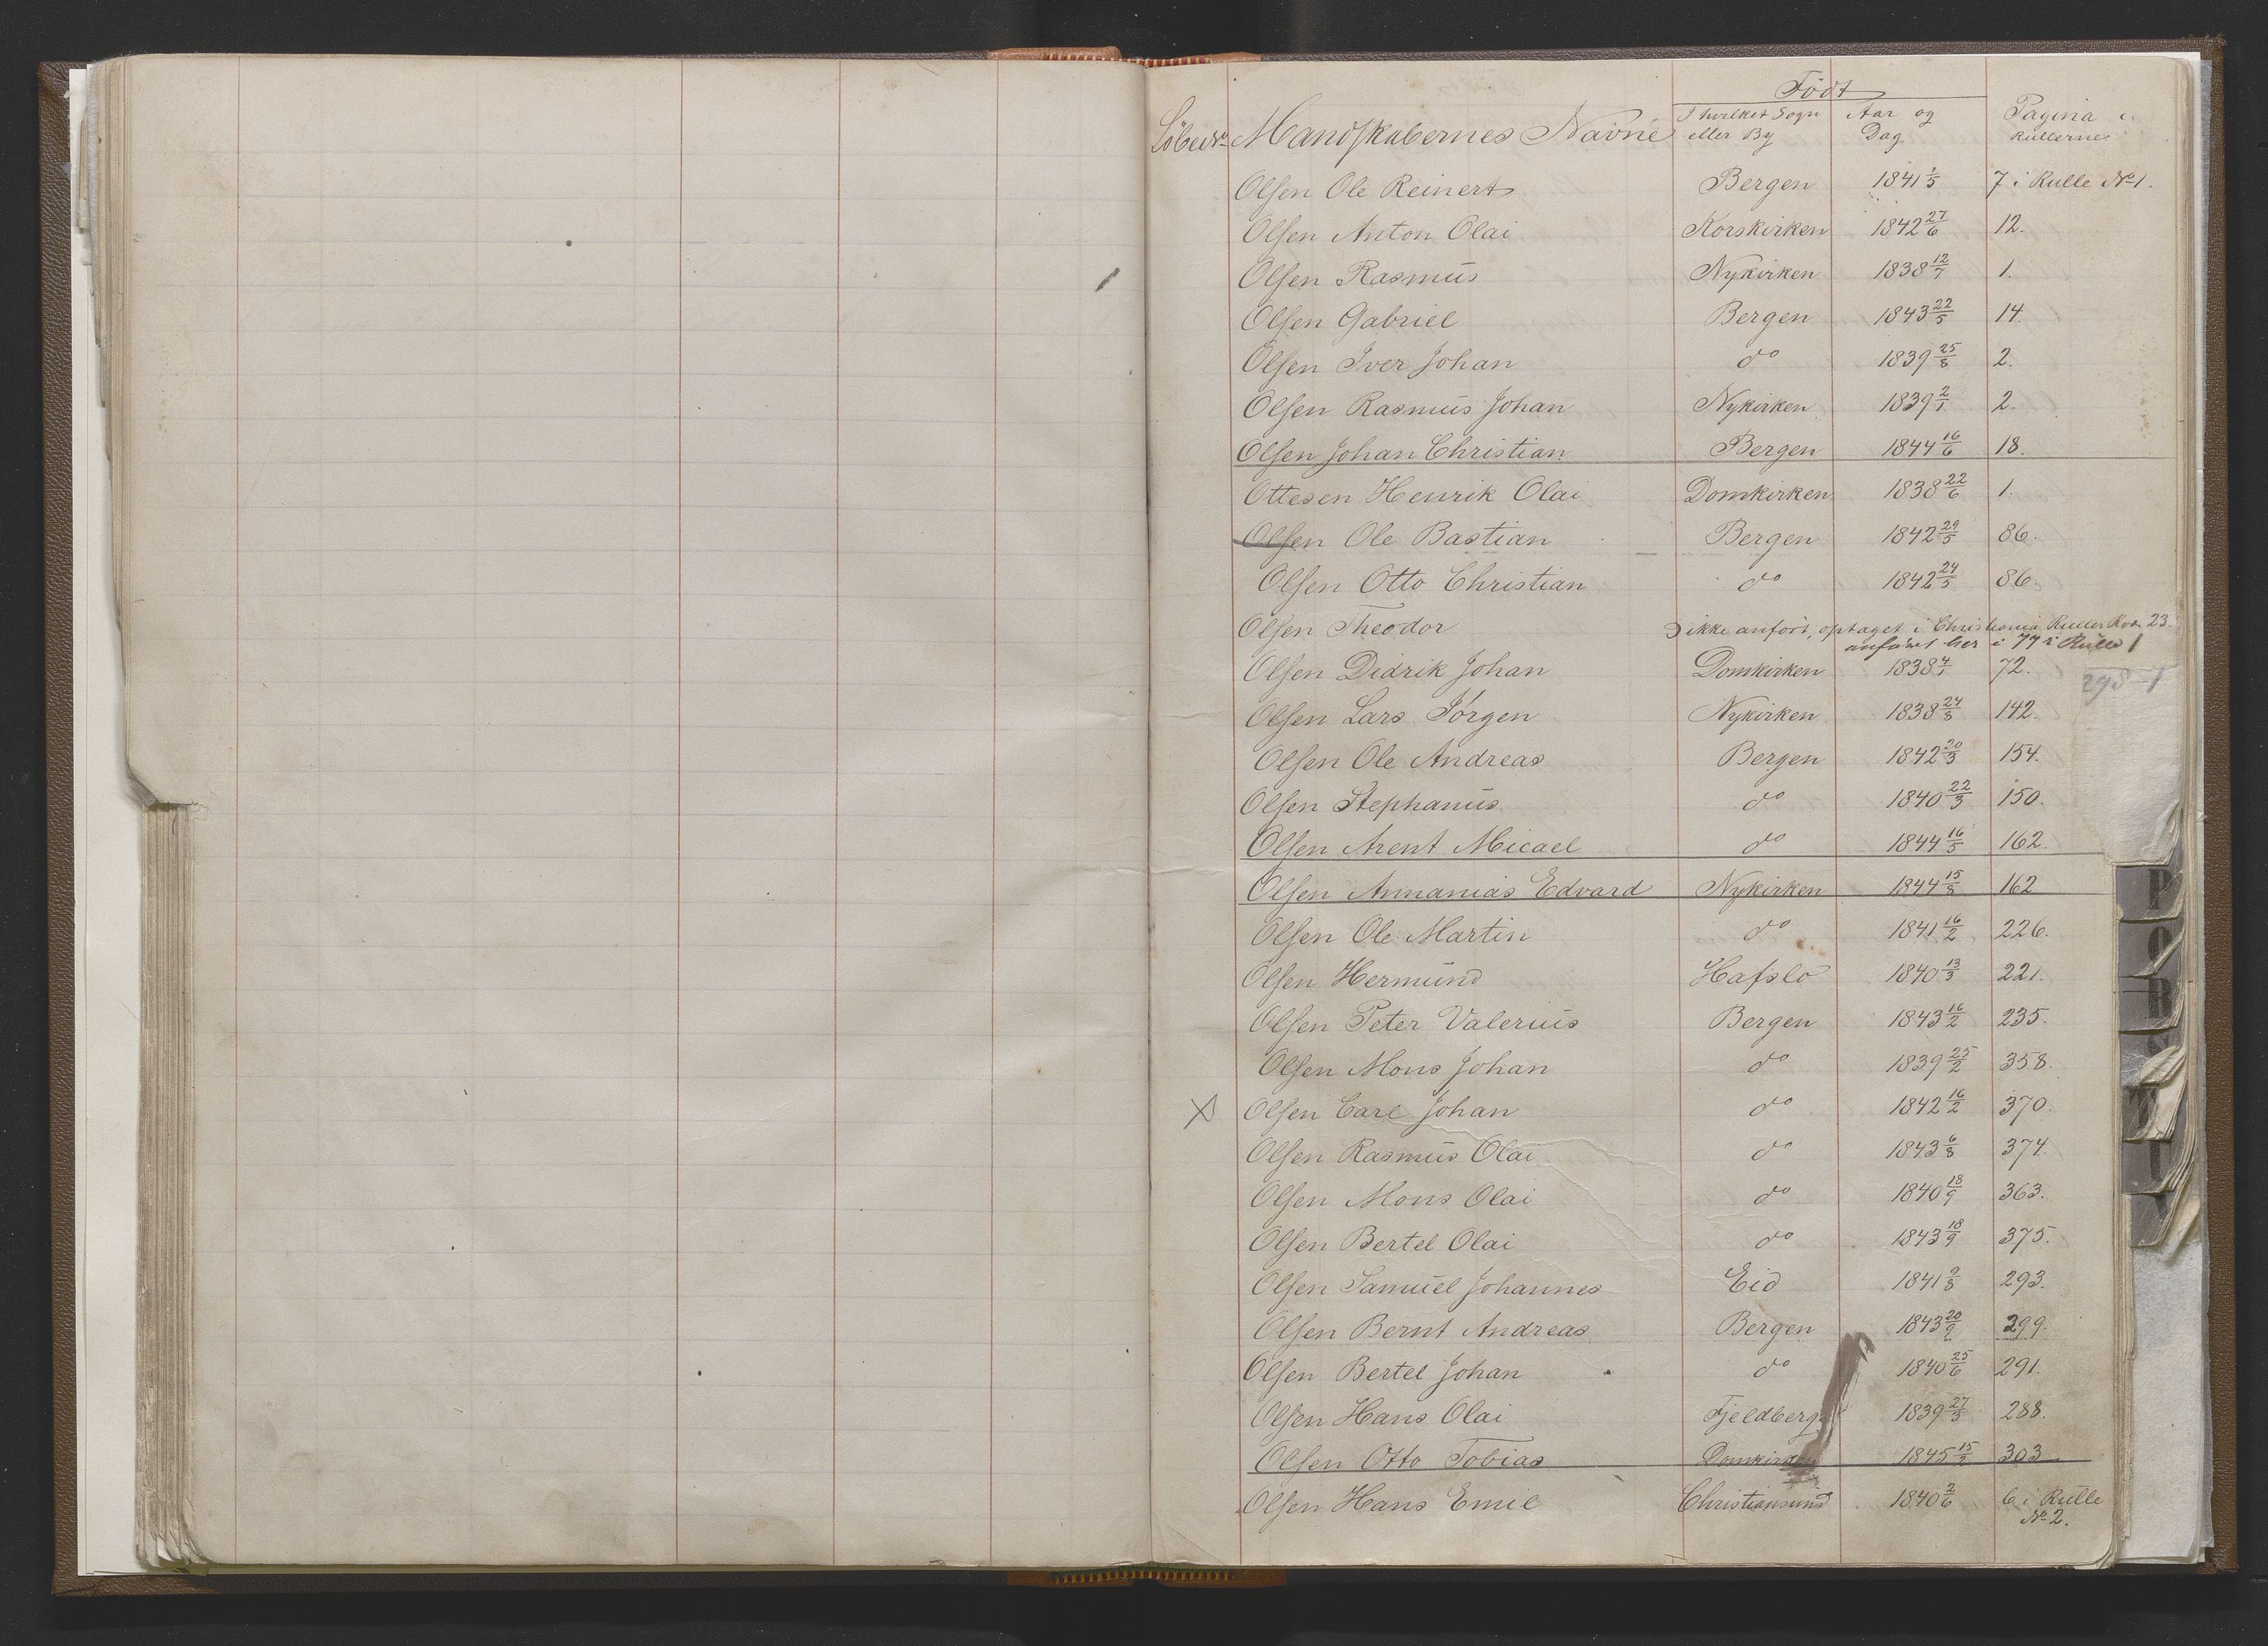 Födt
Löbe No Mandskabernes Navne I hvilket Sogn eller By Aar og Dag Pagina i Rullerne
Olsen Ole Reinert Bergen 1841 1/5 7 i Rulle No 1.
Olsen Anton Olai Korskirken 1842 27/6 12.
Olsen Rasmus Nykirken 1838 12/7 1.
Olsen Gabriel Bergen 1843 22/5 14.
Olsen Iver Johan do 1839 25/8 2.
Olsen Rasmus Johan Nykirken 1839 2/1 2.
Olsen Johan Christian Bergen 1844 16/6 18.
Ottesen Henrik Olai Domkirken 1838 22/6 1.
Olsen Ole Bastian Bergen 1842 29/5 86.
Olsen Otto Christian do 1842 24/5 86.
Olsen Theodor ikke anfört, optaget i Christiania Ruller 23.
anfört her i 77 i Rulle 1
Olsen Didrik Johan Domkirken 1838 4/7 72.
298-1
Olsen Lars Jörgen Nykirken 1838 24/8 142.
Olsen Ole Andreas Bergen 1842 20/3 154.
Olsen Stephanus do 1840 22/3 150.
Olsen Arent Micael do 1844 16/5 162.
Olsen Annanias Edvard Nykirken 1844 15/8 162
Olsen Ole Martin do 1841 16/2 226.
Olsen Hermund Hafslo 1840 13/3 221.
Olsen Peter Valerius Bergen 1843 16/2 235.
Olsen Mons Johan do 1839 25/2 358.
X Olsen Carl Johan do 1842 16/2 370.
Olsen Rasmus Olai do 1843 6/8 374.
Olsen Mons Olai do 1840 18/9 363.
Olsen Bertel Olai do 1843 18/9 375.
Olsen Samuel Johannes Eid 1841 9/8 293.
Olsen Bernt Andreas Bergen 1843 20/9 299.
Olsen Bertel Johan do 1840 25/6 291.
Olsen Hans Olai Fjeldberg 1839 27/3 288.
Olsen Otto Tobias Domkirken 1845 303
Olsen Hans Emil Christiansund 1840 2/6 6 i Rulle
No 2.
P
R
T